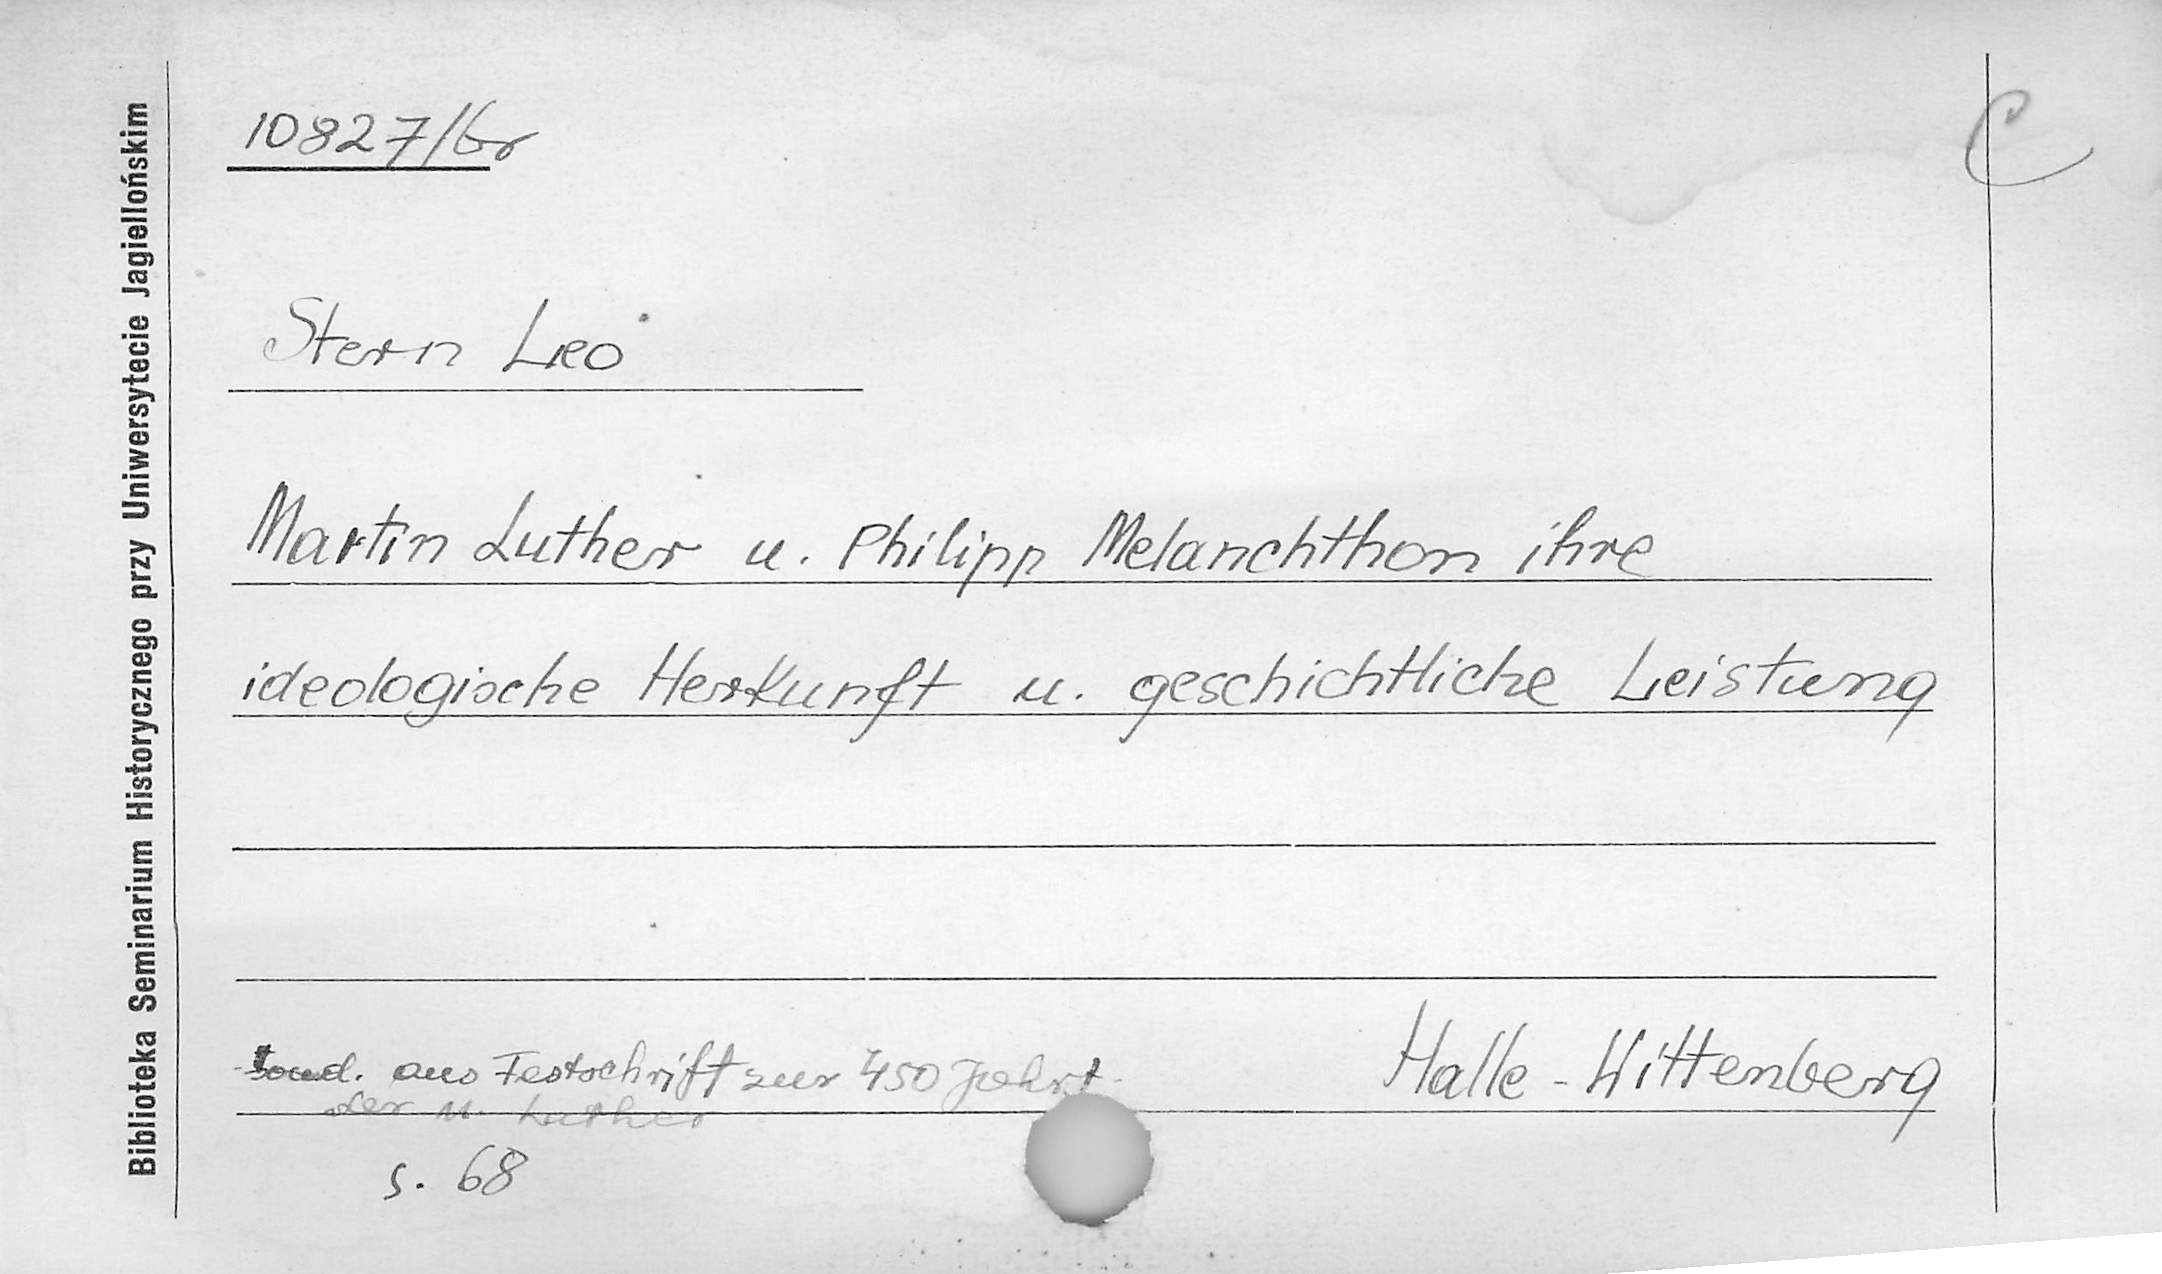 10827/br
C
Stern Leo
Martin Luther u. Philipp Melanchthon ihre
ideologische Herkunft u. geschichtliche Leistung
aus Festschrift zur 450 Jahrt
der M. Luther
Halle-Wittenberg
s. 68
Biblioteka Seminarium Historycznego przy Uniwersytecie Jagiellońskim